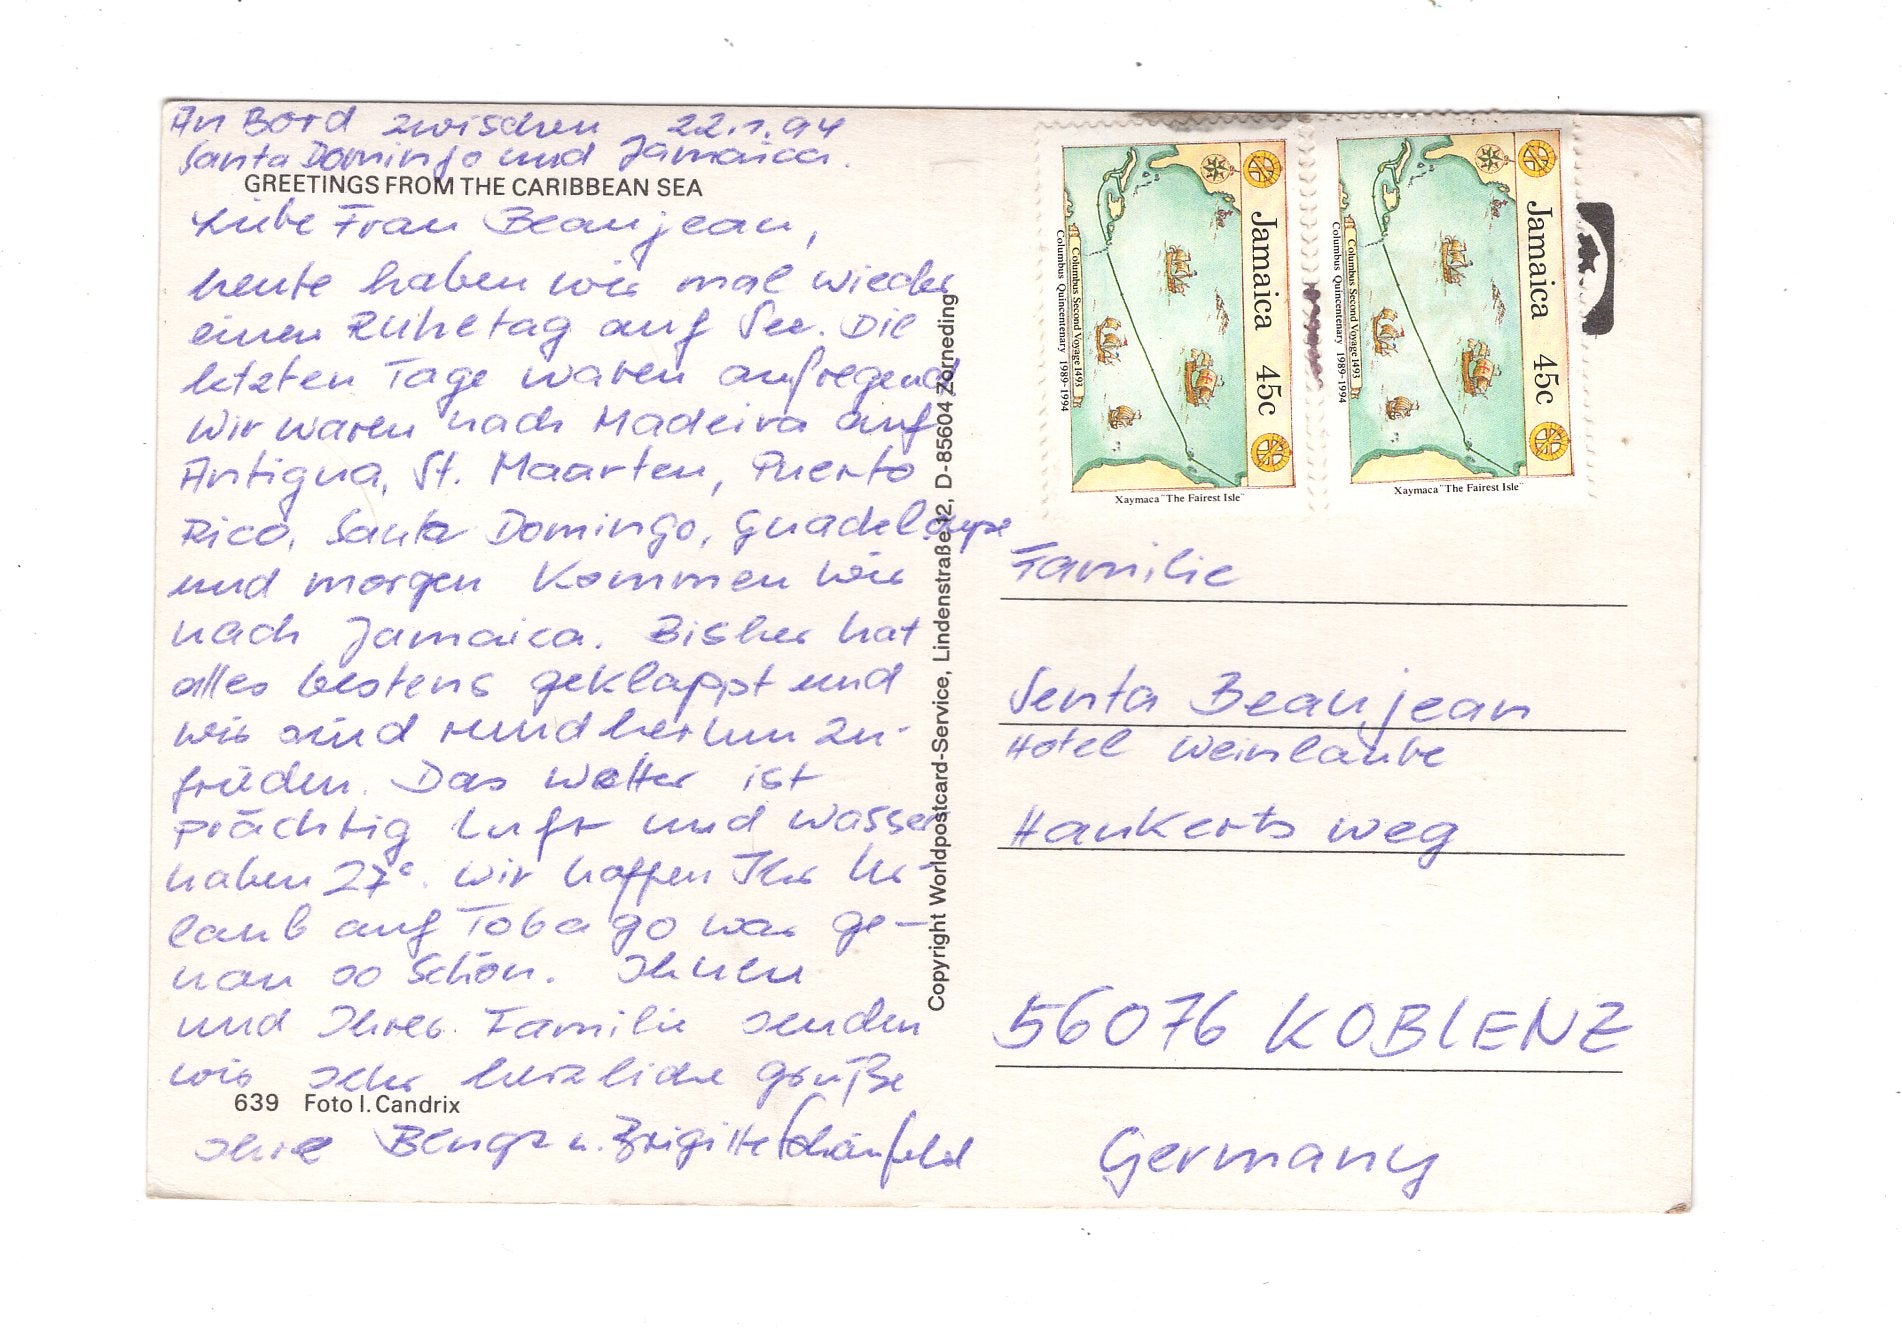 An Bord zwischen 22.1.94
Santa Domingo und Jamaica.
GREETINGS FROM THE CARIBBEAN SEA
Liebe Frau Beaujean,
heute haben wir mal wieder
einen Ruhetag auf See. Die
letzten Tage waren aufregend
Wir waren nach Madeira auf
Antigua, St. Maarten, Puerto
Rico, Santa Domingo, Guadeloupe
und morgen kommen wir
nach Jamaica. Bisher hat
alles bestens geklappt und
wir sind rundherum zu-
frieden. Das Wetter ist
prächtig Luft und Wasser
haben 27°. Wir hoffen Ihr Ur-
laub auf Tobago war ge-
nau so schön. Ihnen
und Ihrer Familie senden
wir sehr herzliche Grüße
639 Foto I. Candrix
Ihre u. Brigitte
Copyright Worldpostcard-Service, Lindenstraße 12, D-85604 Zorneding
Jamaica 45c
Columbus Second Voyage 1493
Columbus Quincentenary 1989-1994
Xaymaca "The Fairest Isle"
Jamaica 45c
Columbus Second Voyage 1493
Columbus Quincentenary 1989-1994
Xaymaca "The Fairest Isle"
Familie
Senta Beaujean
Hotel Weinlaube
Hankerts weg
56076 KOBLENZ
Germany